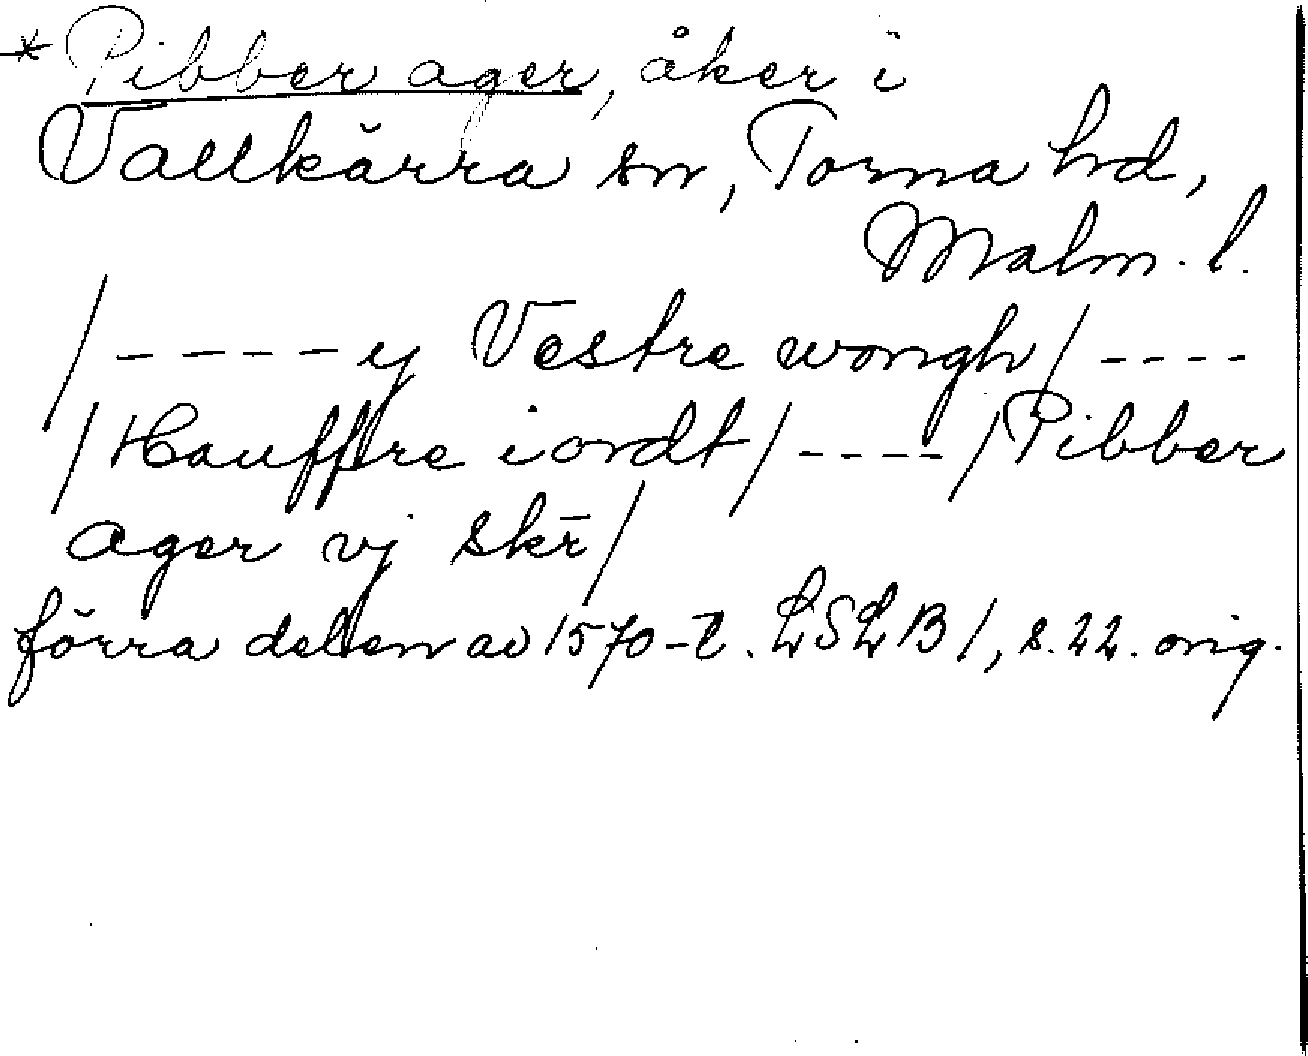 * Pibber ager, åker i
Vallkärra sn, Torna hd,
Malm. l.
/ - - - - y Vestre wongh / - - - -
/ Hauffre iordt / - - - - / Pibber
ager vj skr̄ /
förra delen av 1570-t. LSLB 1, s. 22. orig.